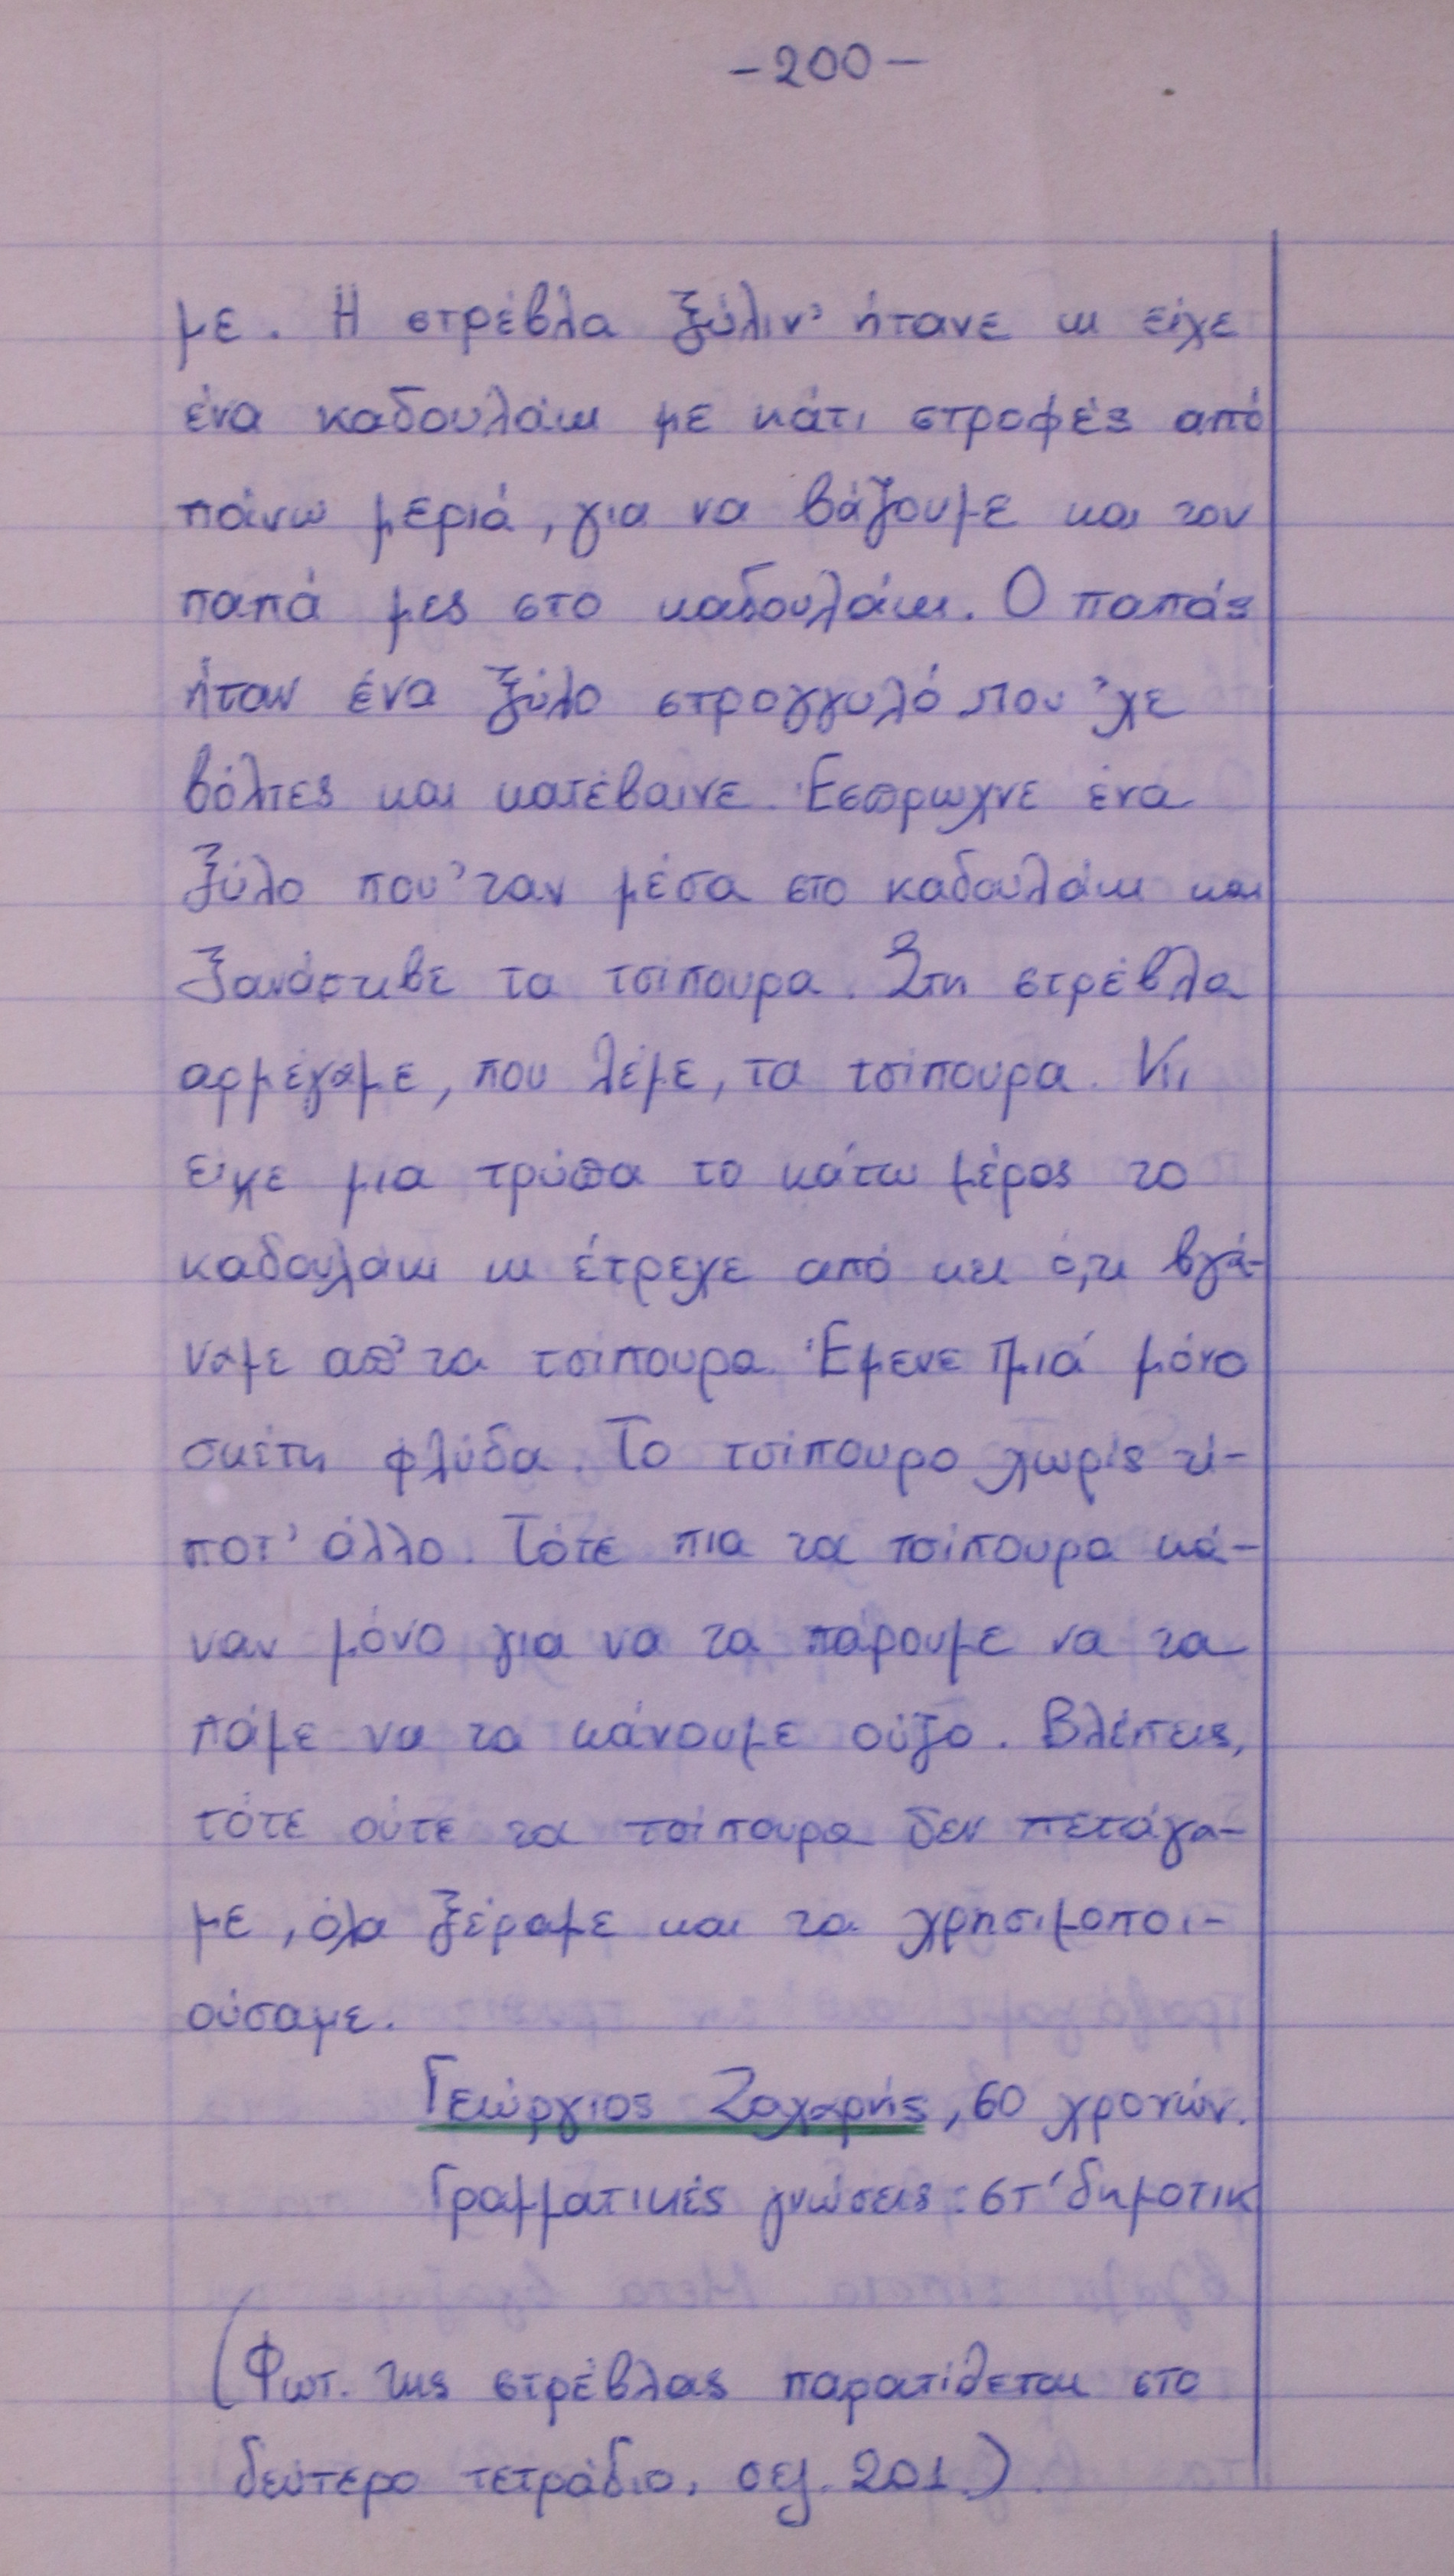 -200-
με. Η στρέβλα ξύλιν' ήτανε κι είχε
ένα καδουλάκι με κάτι στροφές από
πάνω μεριά, για να βάζουμε και τον
παπά μες στο καδουλάκι. Ο παπάς
ήταν ένα ξύλο στρογγυλό που 'χε
βόλτες και κατέβαινε. Έσπρωχνε ένα
ξύλο που 'ταν μέσα στο καδουλάκι και
ξανάστιβε τα τσίπουρα. Στη στρέβλα
αρμέγαμε, που λέμε, τα τσίπουρα. Κι
είχε μια τρύπα το κάτω μέρος το
καδουλάκι κι έτρεχε από κει ό,τι βγά-
ναμε απ' τα τσίπουρα. Έμενε πιά μόνο
σκέτη φλύδα. Το τσίπουρο χωρίς τί-
ποτ' άλλο. Τότε πια τα τσίπουρα κά-
ναν μόνο για να τα πάρουμε να τα
πάμε να τα κάνουμε ούζο. Βλέπεις,
τότε ούτε τα τσίπουρα δεν πετάγα-
με, όλα ξέραμε και τα χρησιμοποι-
ούσαμε.
Γεώργιος Ζαχαρής, 60 χρονών.
Γραμματικές γνώσεις: στ' δημοτικ
(Φωτ. της στρέβλας παρατίθεται στο
δεύτερο τετράδιο, σελ. 201.)